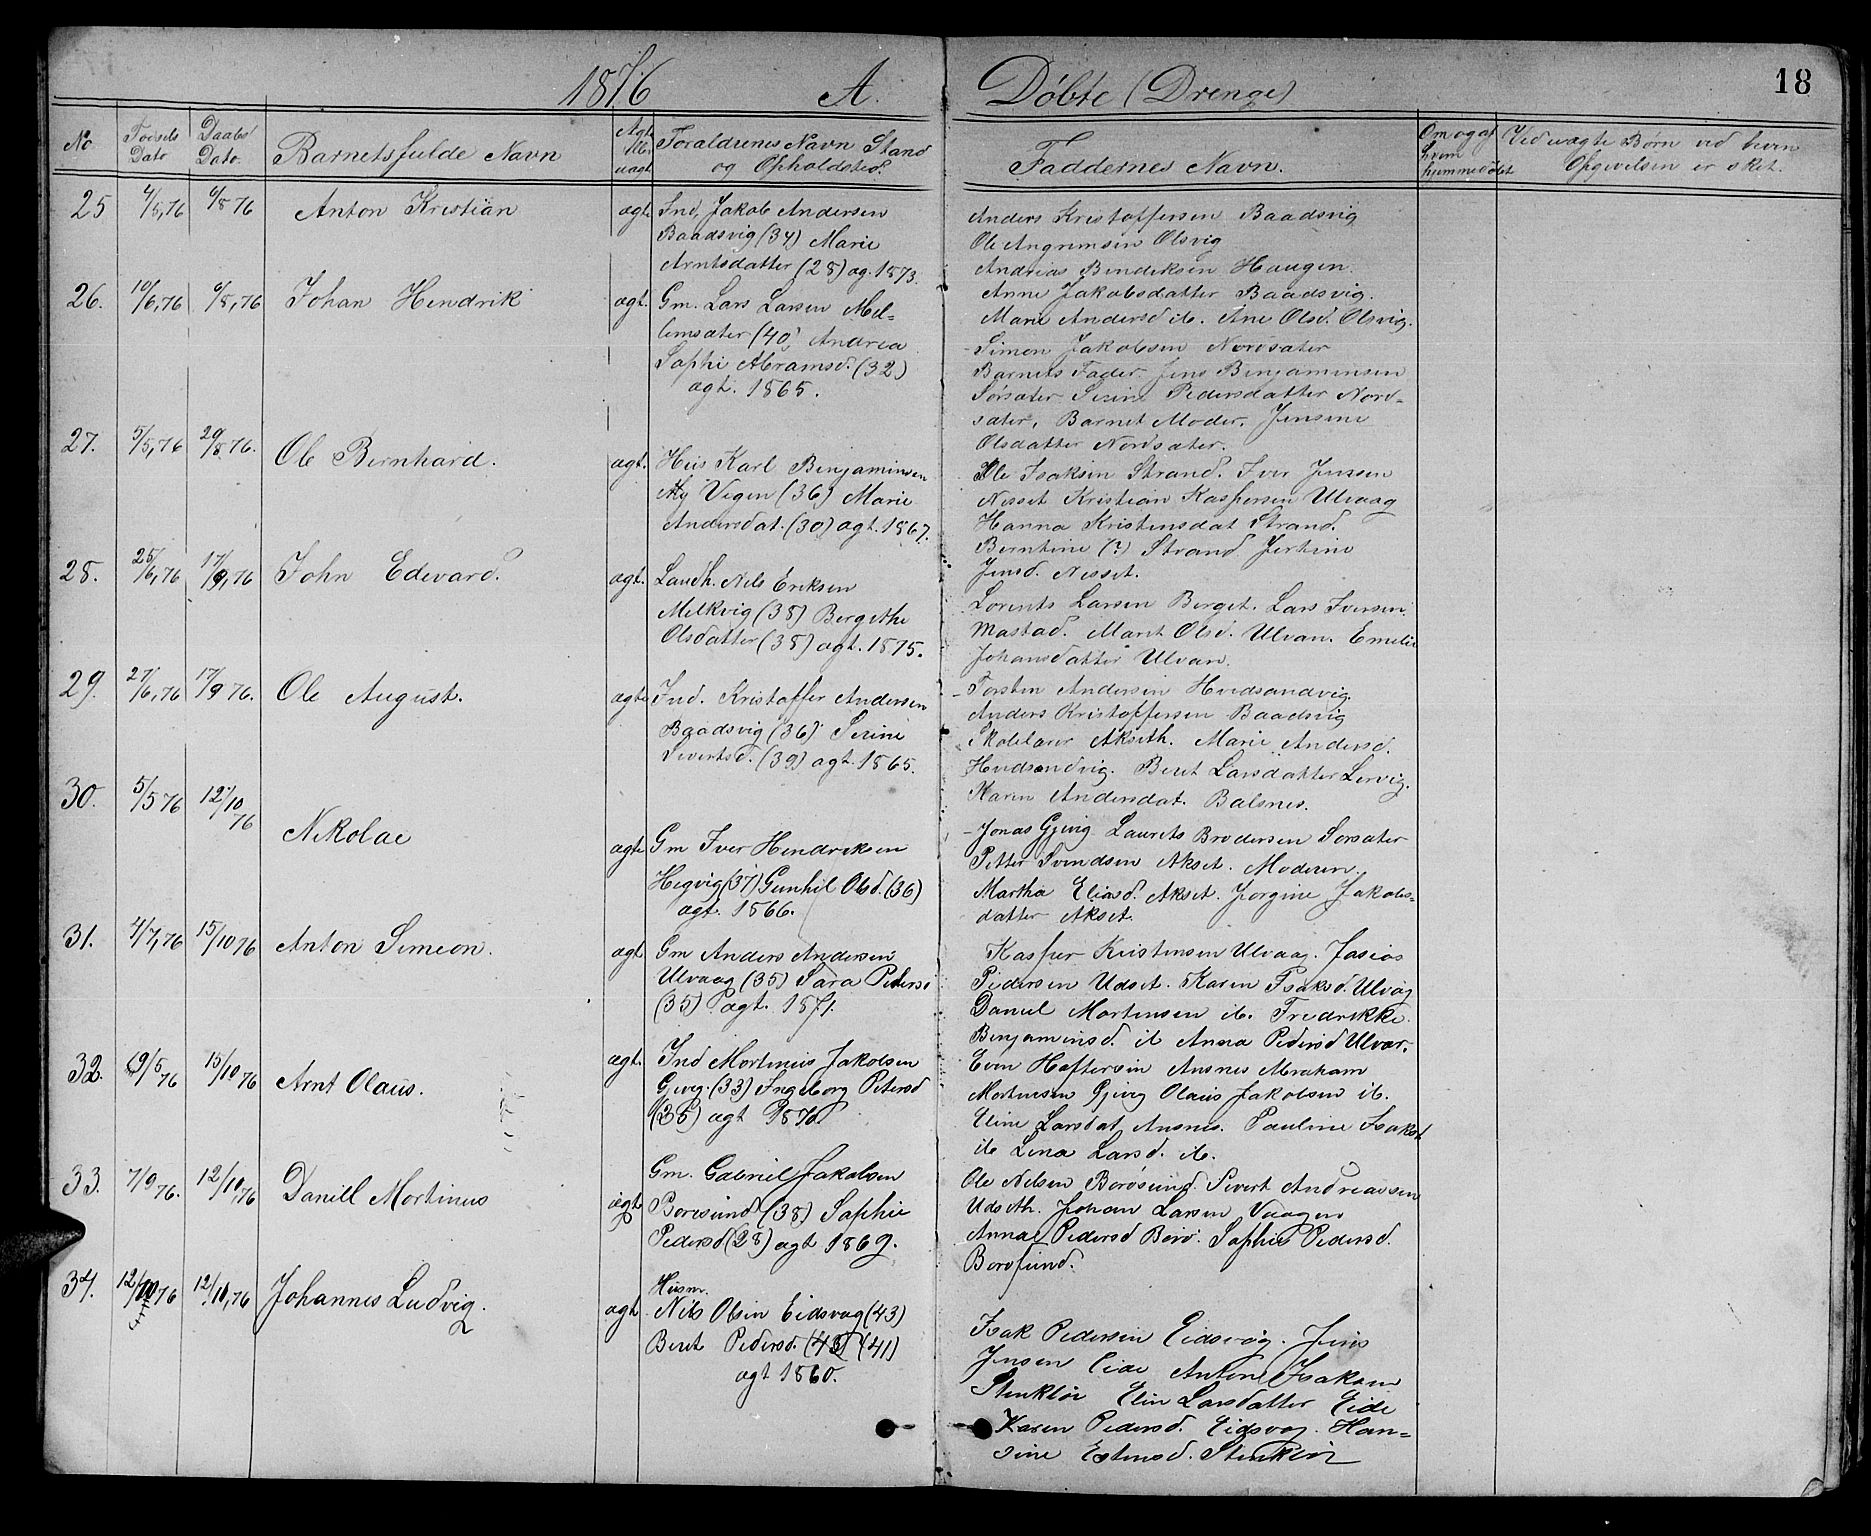 1876 A. Döbte (Drenge) 18
No Födsels Dato Daabs Dato. Barnets fulde Navn Ægt. uægt Foraldrenes Navn Stand og Opholdsted. Faddernes Navn. Om og af hvem hjemmedøbt Ved uægte Børn ved hvem Opgivelsen er sket.
25 4/5, 76 6/8 76 Anton Kristian ægt. Ind. Jakob Andersen
Baadsvig (34) Marie
Arntsdatter (28) æg. 1873.
Anders Kristoffersen Baadsvig
Ole Angrimsen Olsvig
Andrias Bendiksen Haugen.
Anne Jakobsdatter Baadsvig.
Marie Andersd ib. Ane Olsd. Olsvig.
26. 10/6, 76 6/8, 76 Johan Hendrik ægt. Gm. Lars Larsen Mel-
lemsæter (40) Andrea
Sophi Abramsd. (32)
ægt. 1865.
Simen Jakobsen Nordsæter
Barnets Fader. Jens Benjaminsen
Sørsæter Serine Pedersdatter Nord-
sæter, Barnet Moder. Jensine
Olsdatter Nordsæter.
27. 5/5, 76 20/8 76. Ole Bernhard. ægt. Hüs Karl Benjaminsen
My Vegen (36) Marie
Andersdat. (30) ægt. 1867.
Ole Isaksen Strand. Iver Jensen
Nesset Kristian Kaspersen Ulvaag
Hanna Kristensdat Strand.
Berntine (?) Strand Jertine
Jensd. Nesset.
28. 25/6, 76 17/9, 76 John Edevard. ægt. Landh. Nils Eriksen
Melkvig (38) Bergithe
Olsdatter (38) ægt. 1875.
Lorents Larsen Berget. Lars Iversen
Mastad. Marit Olsd. Ulvan. Emelie
Johansdatter Ulvan.
29. 27/6, 76 17/9 76. Ole August. ægte Ind. Kristoffer Andersen
Baadsvig (36) Serine
Sivertsd. (39) ægt. 1865.
Torsten Andersen Hvidsandvig.
Anders Kristoffersen Baadsvig
Skolelærer Akseth. Marie Andersd.
Hvidsandvig. Beret Larsdatter Lervig.
Karen Andersdat. Balsnes.
30. 5/5 76 12/10 76 Nikolae ægte Gm Iver Hendriksen
Hegvig (37) Gunhil Olsd. (36)
ægt. 1866.
Jonas Gjevig Laurits Brodersen Sorsæter
Petter Svendsen Akset. Moderen.
Martha Eliasd. Akset. Jørgine Jakobs-
datter Akset.
31. 4/7, 76 15/10 76 Anton Simeon. ægt Gm Anders Andersen
Ulvaag (35) Sara Peders
(35) ægt. 1871.
Kasper Kristensen Ulvaag. Josias
Pedersen Udset. Karen Isaksd. Ulvåg
Daniel Mortensen ib. Fredrikke
Benjaminsd. ib Anna Pedersd Ulvær.
32. 9/5 76 15/10 76 Arnt Olaus. ægt. Ind Mortinus Jakobsen
Gjevig. (33) Ingeborg Petersd
(35) ægt 1870
Even Haftersen Ansnes Abraham
Mortensen Gjevig Olaus Jakobsen ib.
Eline Larsdat Ansnes. Pauline Isaksd
ib Lina Larsd. ib.
33. 7/9 76. 12/10 76 Daniel Mortinus ægt Gm. Gabriel Jakobsen
Boresund (38) Saphie
Pedersd (28) ægt 1869.
Ole Nelsen Borøsund. Sivert Andreassen
Udseth. Johan Larsen Vaagen
Anna Pedersd Borø. Saphie Pedersd.
Borøsund.
34. 12/10 76 12/11, 76 Johannes Ludvig. ægt Husm.
Nils Olsen Eidsvag (43)
Beret Pedersd. (43) (41)
ægt 1860.
Isak Pedersen Eidsvåg. Jens
Jensen Eide Anton Isaksen
Stenklør Elen Larsdatter Eide
Karen Pedersd. Eidsvag. Han-
sine Estensd. Stenklør